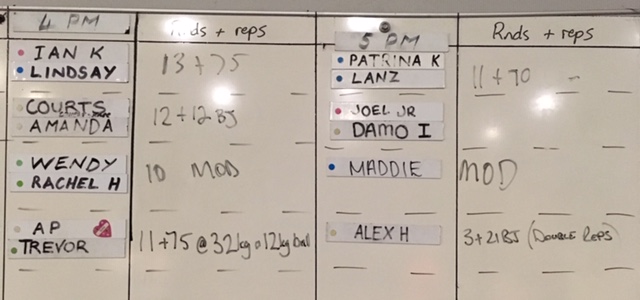 4 PM
Rnds + reps
IAN K
LINDSAY
13 + 75
COURTS
AMANDA
12 + 12 BJ
WENDY
RACHEL H
10 MOD
AP
TREVOR
11 + 75 @ 32kg + 12kg ball
5 PM
Rnds + reps
PATRINA K
LANZ
11 + 70
JOEL JR
DAMO I
MADDIE
MOD
ALEX H
3 + 21 BJ (DOUBLE REPS)